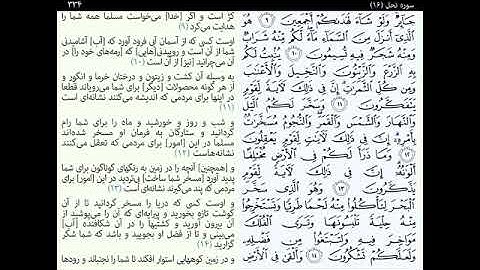 سوره نحل (۱۶)
جَآئِرٌ وَلَوْ شَآءَ لَهَدَىٰكُمْ أَجْمَعِينَ ۹ هُوَ
ٱلَّذِىٓ أَنزَلَ مِنَ ٱلسَّمَآءِ مَآءً لَّكُم مِّنْهُ شَرَابٌ
وَمِنْهُ شَجَرٌ فِيهِ تُسِيمُونَ ۱۰ يُنۢبِتُ لَكُم
بِهِ ٱلزَّرْعَ وَٱلزَّيْتُونَ وَٱلنَّخِيلَ وَٱلْأَعْنَٰبَ
وَمِن كُلِّ ٱلثَّمَرَٰتِ إِنَّ فِى ذَٰلِكَ لَآيَةً لِّقَوْمٍ
يَتَفَكَّرُونَ ۱۱ وَسَخَّرَ لَكُمُ ٱلَّيْلَ
وَٱلنَّهَارَ وَٱلشَّمْسَ وَٱلْقَمَرَ وَٱلنُّجُومُ مُسَخَّرَٰتٌ
بِأَمْرِهِ إِنَّ فِى ذَٰلِكَ لَآيَٰتٍ لِّقَوْمٍ يَعْقِلُونَ
۱۲ وَمَا ذَرَأَ لَكُمْ فِى ٱلْأَرْضِ مُخْتَلِفًا
أَلْوَٰنُهُ إِنَّ فِى ذَٰلِكَ لَآيَةً لِّقَوْمٍ
يَذَّكَّرُونَ ۱۳ وَهُوَ ٱلَّذِى سَخَّرَ
ٱلْبَحْرَ لِتَأْكُلُوا۟ مِنْهُ لَحْمًا طَرِيًّا وَتَسْتَخْرِجُوا۟
مِنْهُ حِلْيَةً تَلْبَسُونَهَا وَتَرَى ٱلْفُلْكَ
مَوَاخِرَ فِيهِ وَلِتَبْتَغُوا۟ مِن فَضْلِهِ
وَلَعَلَّكُمْ تَشْكُرُونَ ۱۴ وَأَلْقَىٰ فِى ٱلْأَرْضِ
کژ است و اگر [خدا] می‌خواست مسلما همه شما را
هدایت می‌کرد (۹)
اوست کسی که از آسمان آبی فرود آورد که [آب] آشامیدنی
شما از آن است و روییدنی‌[هایی] که [رمه‌های خود را] در
آن می‌چرانید [نیز] از آن است (۱۰)
به وسیله آن کشت و زیتون و درختان خرما و انگور و
از هر گونه محصولات [دیگر] برای شما می‌رویاند قطعا
در اینها برای مردمی که اندیشه می‌کنند نشانه‌ای است
(۱۱)
و شب و روز و خورشید و ماه را برای شما رام
گردانید و ستارگان به فرمان او مسخر شده‌اند
مسلما در این [امور] برای مردمی که تعقل می‌کنند
نشانه‌هاست (۱۲)
و [همچنین] آنچه را در زمین به رنگهای گوناگون برای شما
پدید آورد [مسخر شما ساخت] بی‌تردید در این [امور] برای
مردمی که پند می‌گیرند نشانه‌ای است (۱۳)
و اوست کسی که دریا را مسخر گردانید تا از آن
گوشت تازه بخورید و پیرایه‌ای که آن را می‌پوشید از
آن بیرون آورید و کشتیها را در آن شکافنده [آب]
می‌بینی و تا از فضل او بجویید و باشد که شما شکر
گزارید (۱۴)
و در زمین کوههایی استوار افکند تا شما را نجنباند و رودها